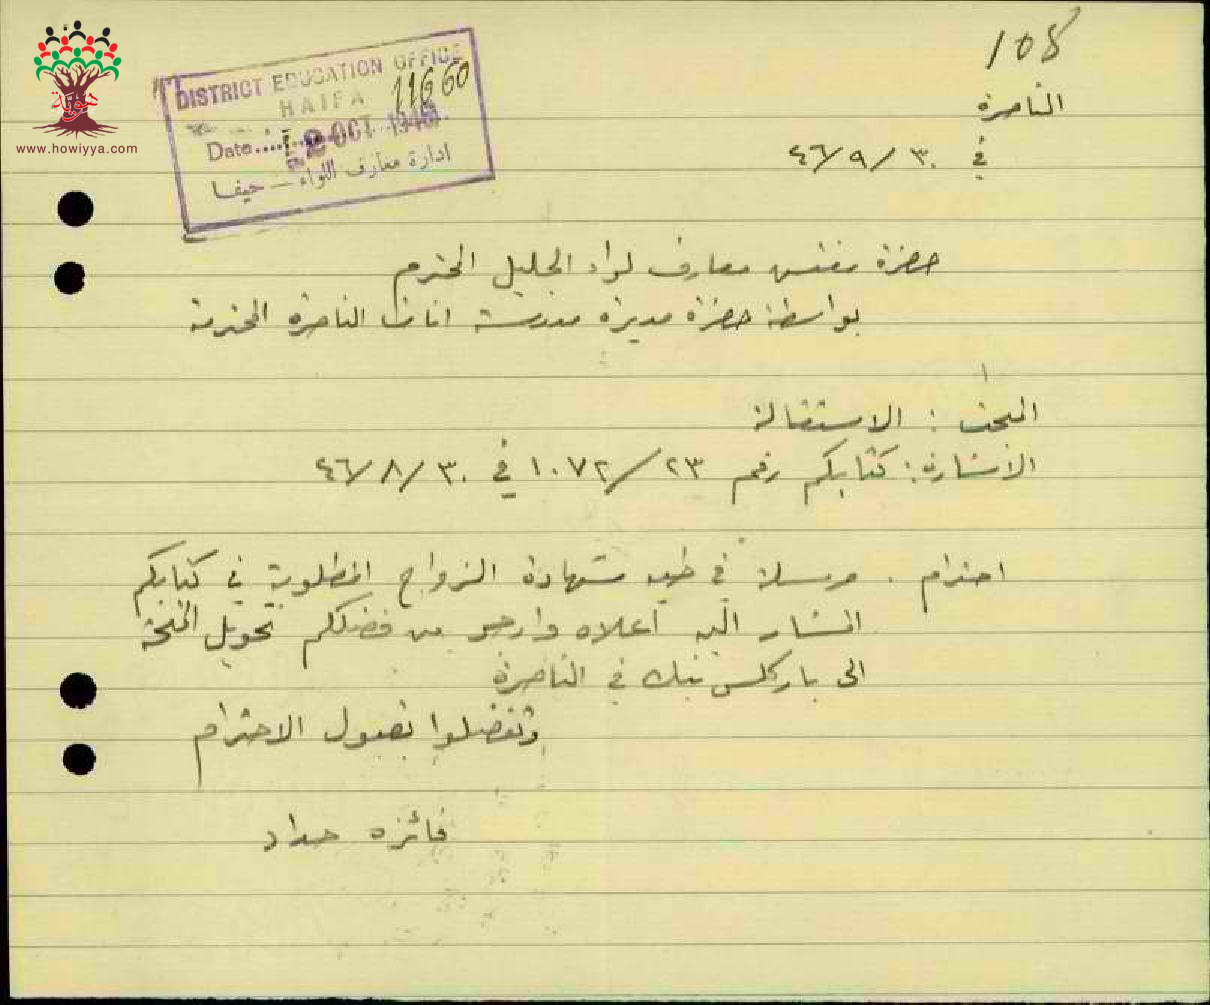 هوية
www.howiyya.com
DISTRICT EDUCATION OFFICE
11660
HAIFA
Date.... 2 OCT 1946
ادارة معارف اللواء – حيفا
108
الناصرة
في ٣٠/٩/٤٦
حضرة مفتش معارف لواء الجليل المحترم
بواسطة حضرة مديرة مدرسة اناث الناصرة المحترمة
المبحث : الاستقالة
الاشارة : كتابكم رقم ٢٣/١٠٧٢ في ٣٠/٨/٤٦
احترام . مرسلة في طيه شهادة الزواج المطلوبة في كتابكم
المشار اليه اعلاه وارجو من فضلكم تحويل المنحة
الى باركلس بنك في الناصرة
وتفضلوا بقبول الاحترام
فائزه حداد